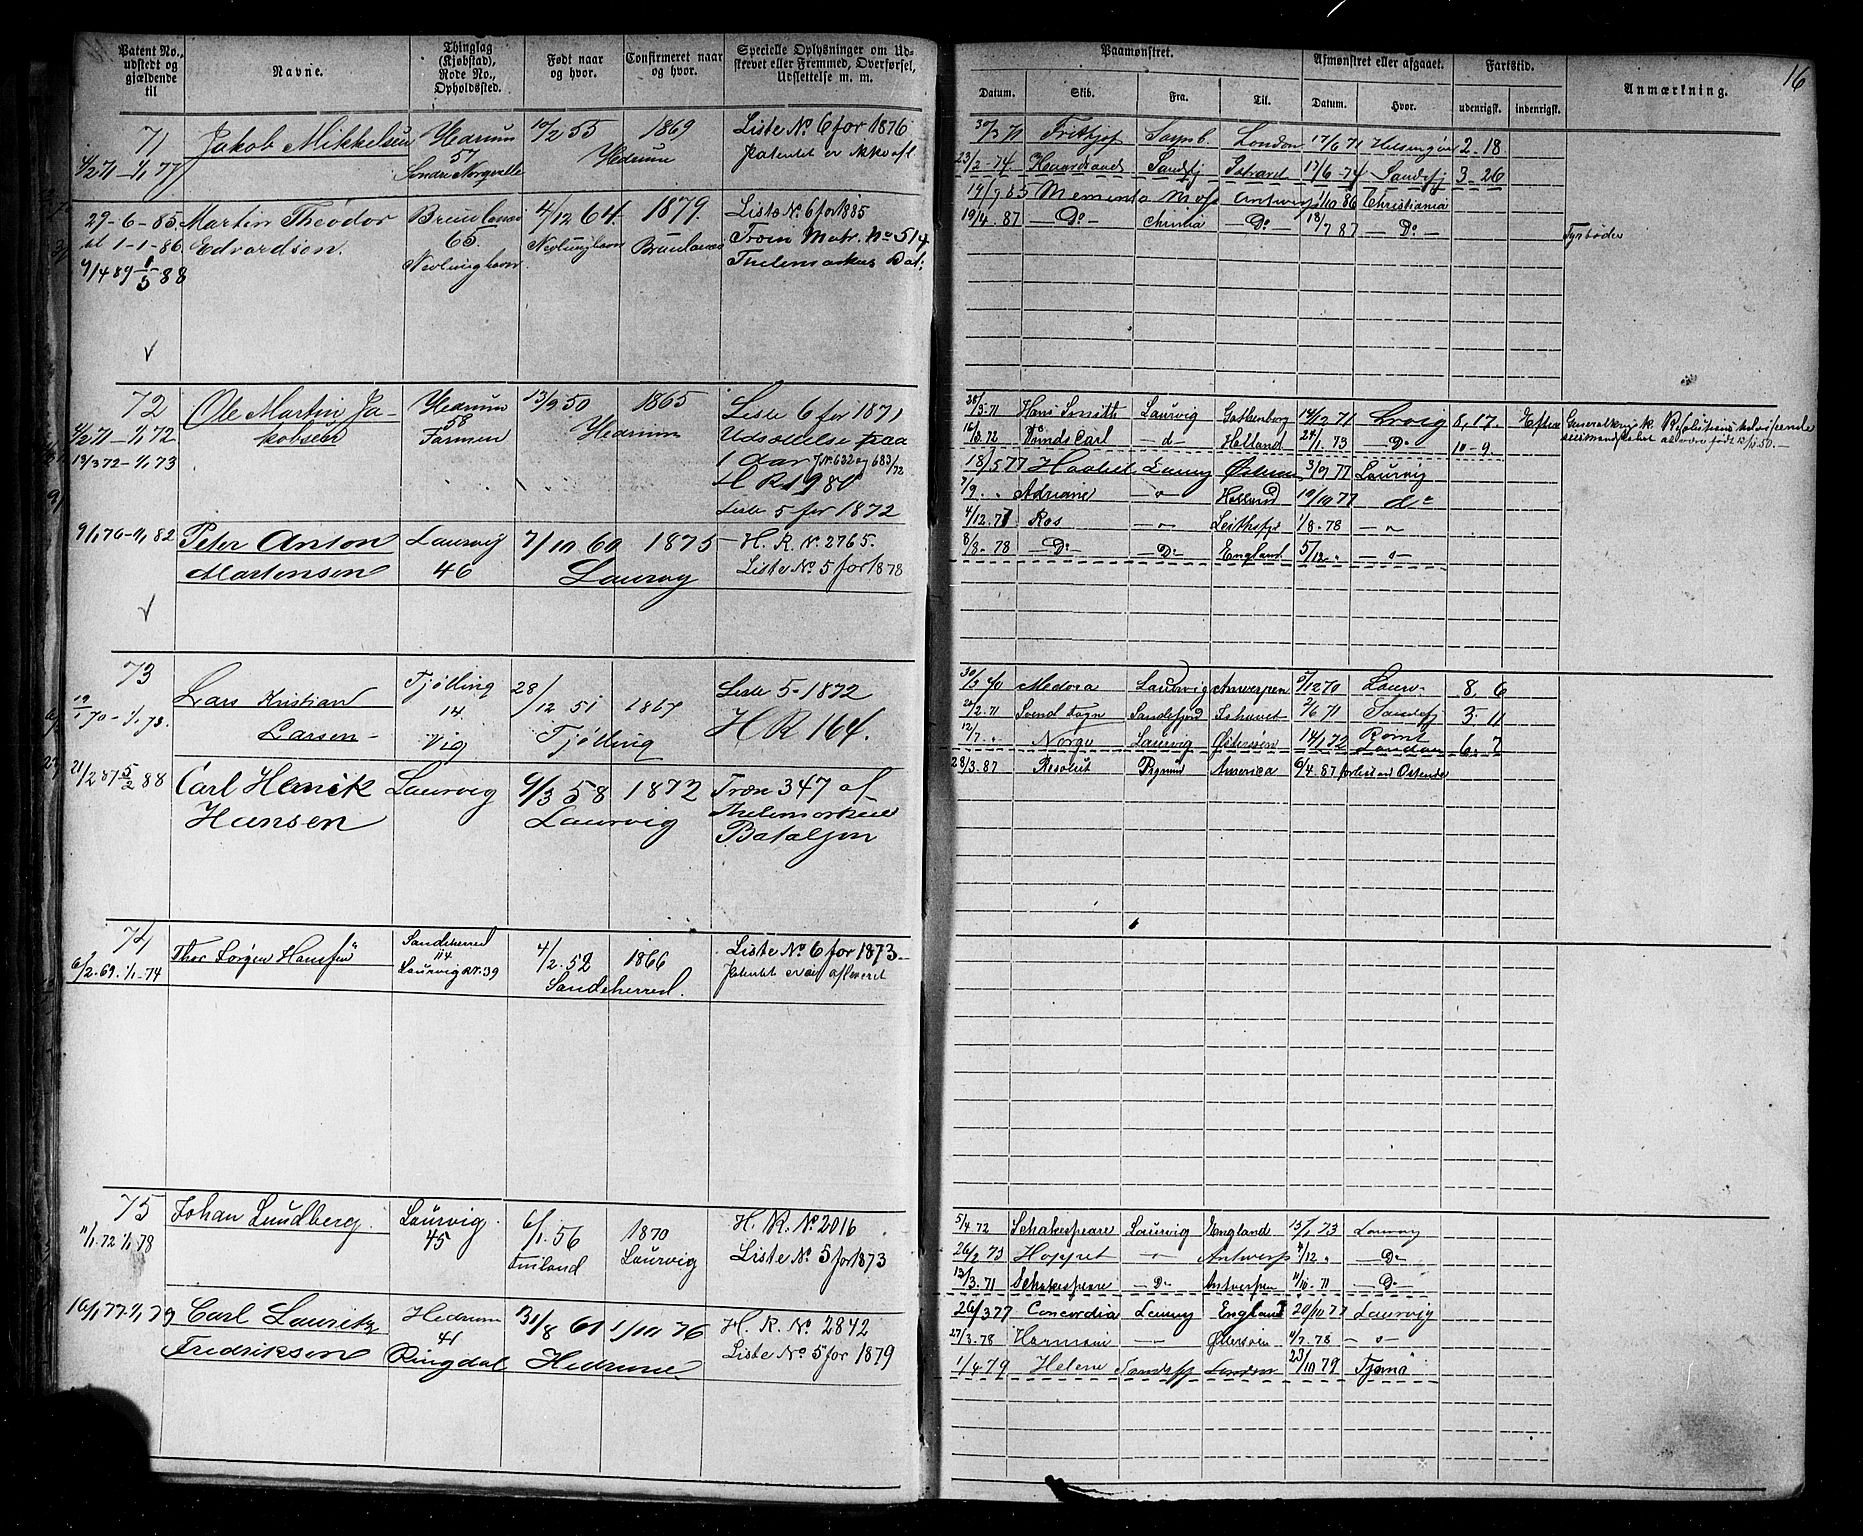 16
Patent No., udstedt og gjældende til
Navne.
Thinglag (Kjøbstad), Rode No., Opholdssted.
Født naar og hvor.
Confirmeret naar og hvor.
Specielle Oplysninger om Udskrevet eller Fremmed, Overførsel, Udsættelse m. m.
Paamønstret.
Afmønstret eller afgaaet.
Fartstid.
Anmærkning.
Datum.
Skib.
Fra.
Til.
Datum.
Hvor.
udenrigsk.
indenrigsk.
71 Jakob Mikkelsen Hedrum 10/2 55 1869 Liste No 6 for 1876
4/2 71 – 1/1 77 57 Hedrum Patentet er ikke afl.
30/3 71 Frithjof London 17/6 71 Helsingør 2-18
23/2-74 Sandefj 17/6-74 Sandefj 3-26
29-6-85 Martin Theodor Brunlanæs 4/12 64. 1879. Liste No. 6 for 1885
til 1-1-86 Edvardsen. 65. Nevlunghavn Brunlanæs Troin Matr. No 514
Nevlunghavn Thelemarkens Bat.
19/7 85 Memento Mos Antwerp 1/10 86 Christiania
19/4. 87 —Do— Chrnia —Do— 13/7 87 —Do—
Fyrbøder
72 Ole Martin Ja- Hedrum 13/9 50 1865 Liste 6 for 1871
4/2 71 – 1/1 72 kobsen 58 Hedrum Udsættelse paa
13/3 72 – 1/1 73 Farmen 1 aar J. No 632 og 683/72
H R 1980
Liste 5 for 1872
28/3 71 Hans Smith Laurvig Gothenborg 14/12 71 Lrvig 8, 17.
16/3. 72 Carl d Holland 24/1 73 —Do— 10-9
18/5 77 Laurvig 3/9 77 Laurvig
7/9 . Adriane Holland 19/10 77 do
9/1 76 – 1/1 82 Peter Anton Laurvig 7/10 60 1875 H. R. No. 2765.
Martensen 46 Laurvig Liste No 5 for 1878
4/12. 77 Ros 1/8-78
8/8-78 —Do— —Do— England 5/12 .
73 Lars Kristian Tjølling 28/12 51 1867 Liste 5-1872
19/1 70 – 1/1 73. Larsen 14. Vig Tjølling H R 164.
30/3 70 Medora Laurvig Antwerpen 5/12 70 Laurv. 8, 6
24/2. 71 Svend Fogn Sandefjord Ishavet 2/6 71 Sandefj 3-11
12/7 . Norge Laurvig Østersøen 14/1 72 London 6-7
21/2 87 5/2 88 Carl Henrik Laurvig 9/3 58 1872 Tron 347 af
Hansen Laurvig Thelemarkens
Bataljon
28/3. 87 Resolut America 6/4. 87 forlist ved Ostende
74 Thor Sørgen Hanssen Sandeherred 4/2. 52 1866 Liste No 6 for 1873
6/2. 69. 1/1-74 114 Laurvig Rt. 39 Sandeherred. Patentet er afleveret
75 Johan Lundberg. Laurvig. 6/1. 56 1870 H. R. No 2016
11/1. 72 1/1 78 45 Finland Laurvig Liste No 5 for 1873
5/4. 72 Schakespeare Laurvig England 13/1 73 Laurvig
26/2 73 Hoppet Antwerp 4/12 . —Do—
13/3. 71 Schakespeare —Do— Antverpen 11/10. 71 —Do—
16/1 77 – 1/1 79 Carl Lauritz Hedrum 31/8 61 1/10 76 H. R. No 2842
Fredriksen 41 Ringdal Hedrum Liste No 5 for 1879
26/3 77 Concordia Laurvig England 20/10 77 Laurvig
27/3. 78 Harmoni Østersøen 4/7. 78
1/4. 79 Helene Sandefj London 23/10 79 Tjømø